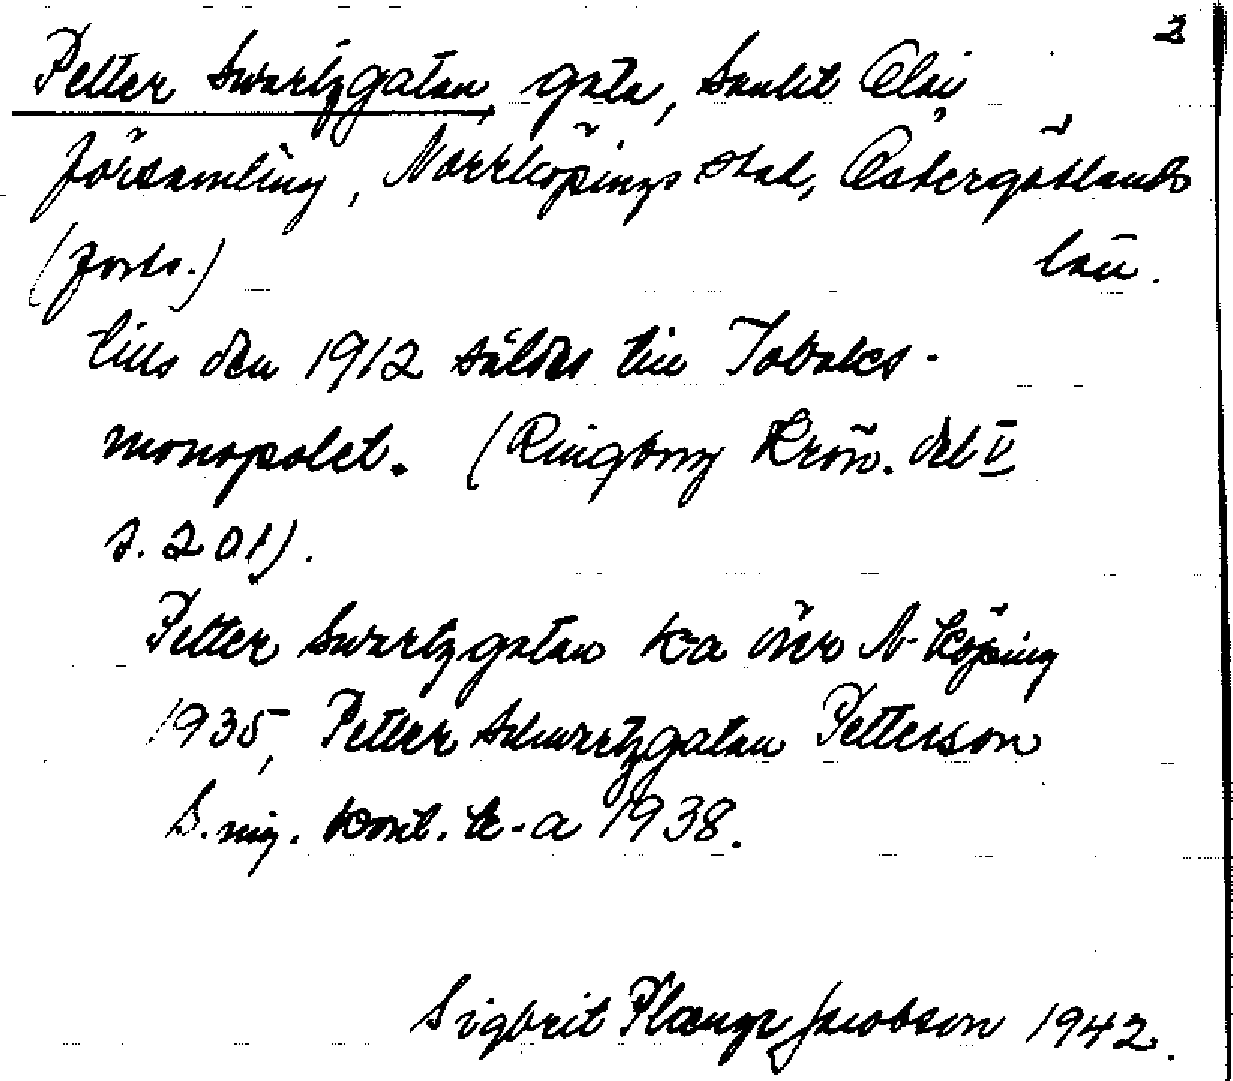 2
Petter Swartzgatan, gata, Sankt Olai
församling, Norrköpings stad, Östergötlands
(forts.) län.
tills den 1912 såldes till Tobaks-
monopolet. (Ringborg Krön. del V
s. 201).
Petter Swartzgatan ka över N-köping
1935, Petter Schwartzgatan Petterson
S. mij. komb. k-a 1938.
Sigbrit Plænge Jacobson 1942.